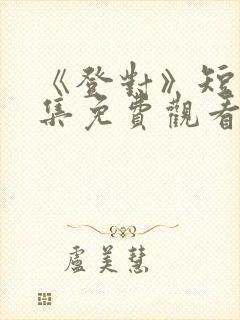 《登對》短
集免費觀看
盧美慧